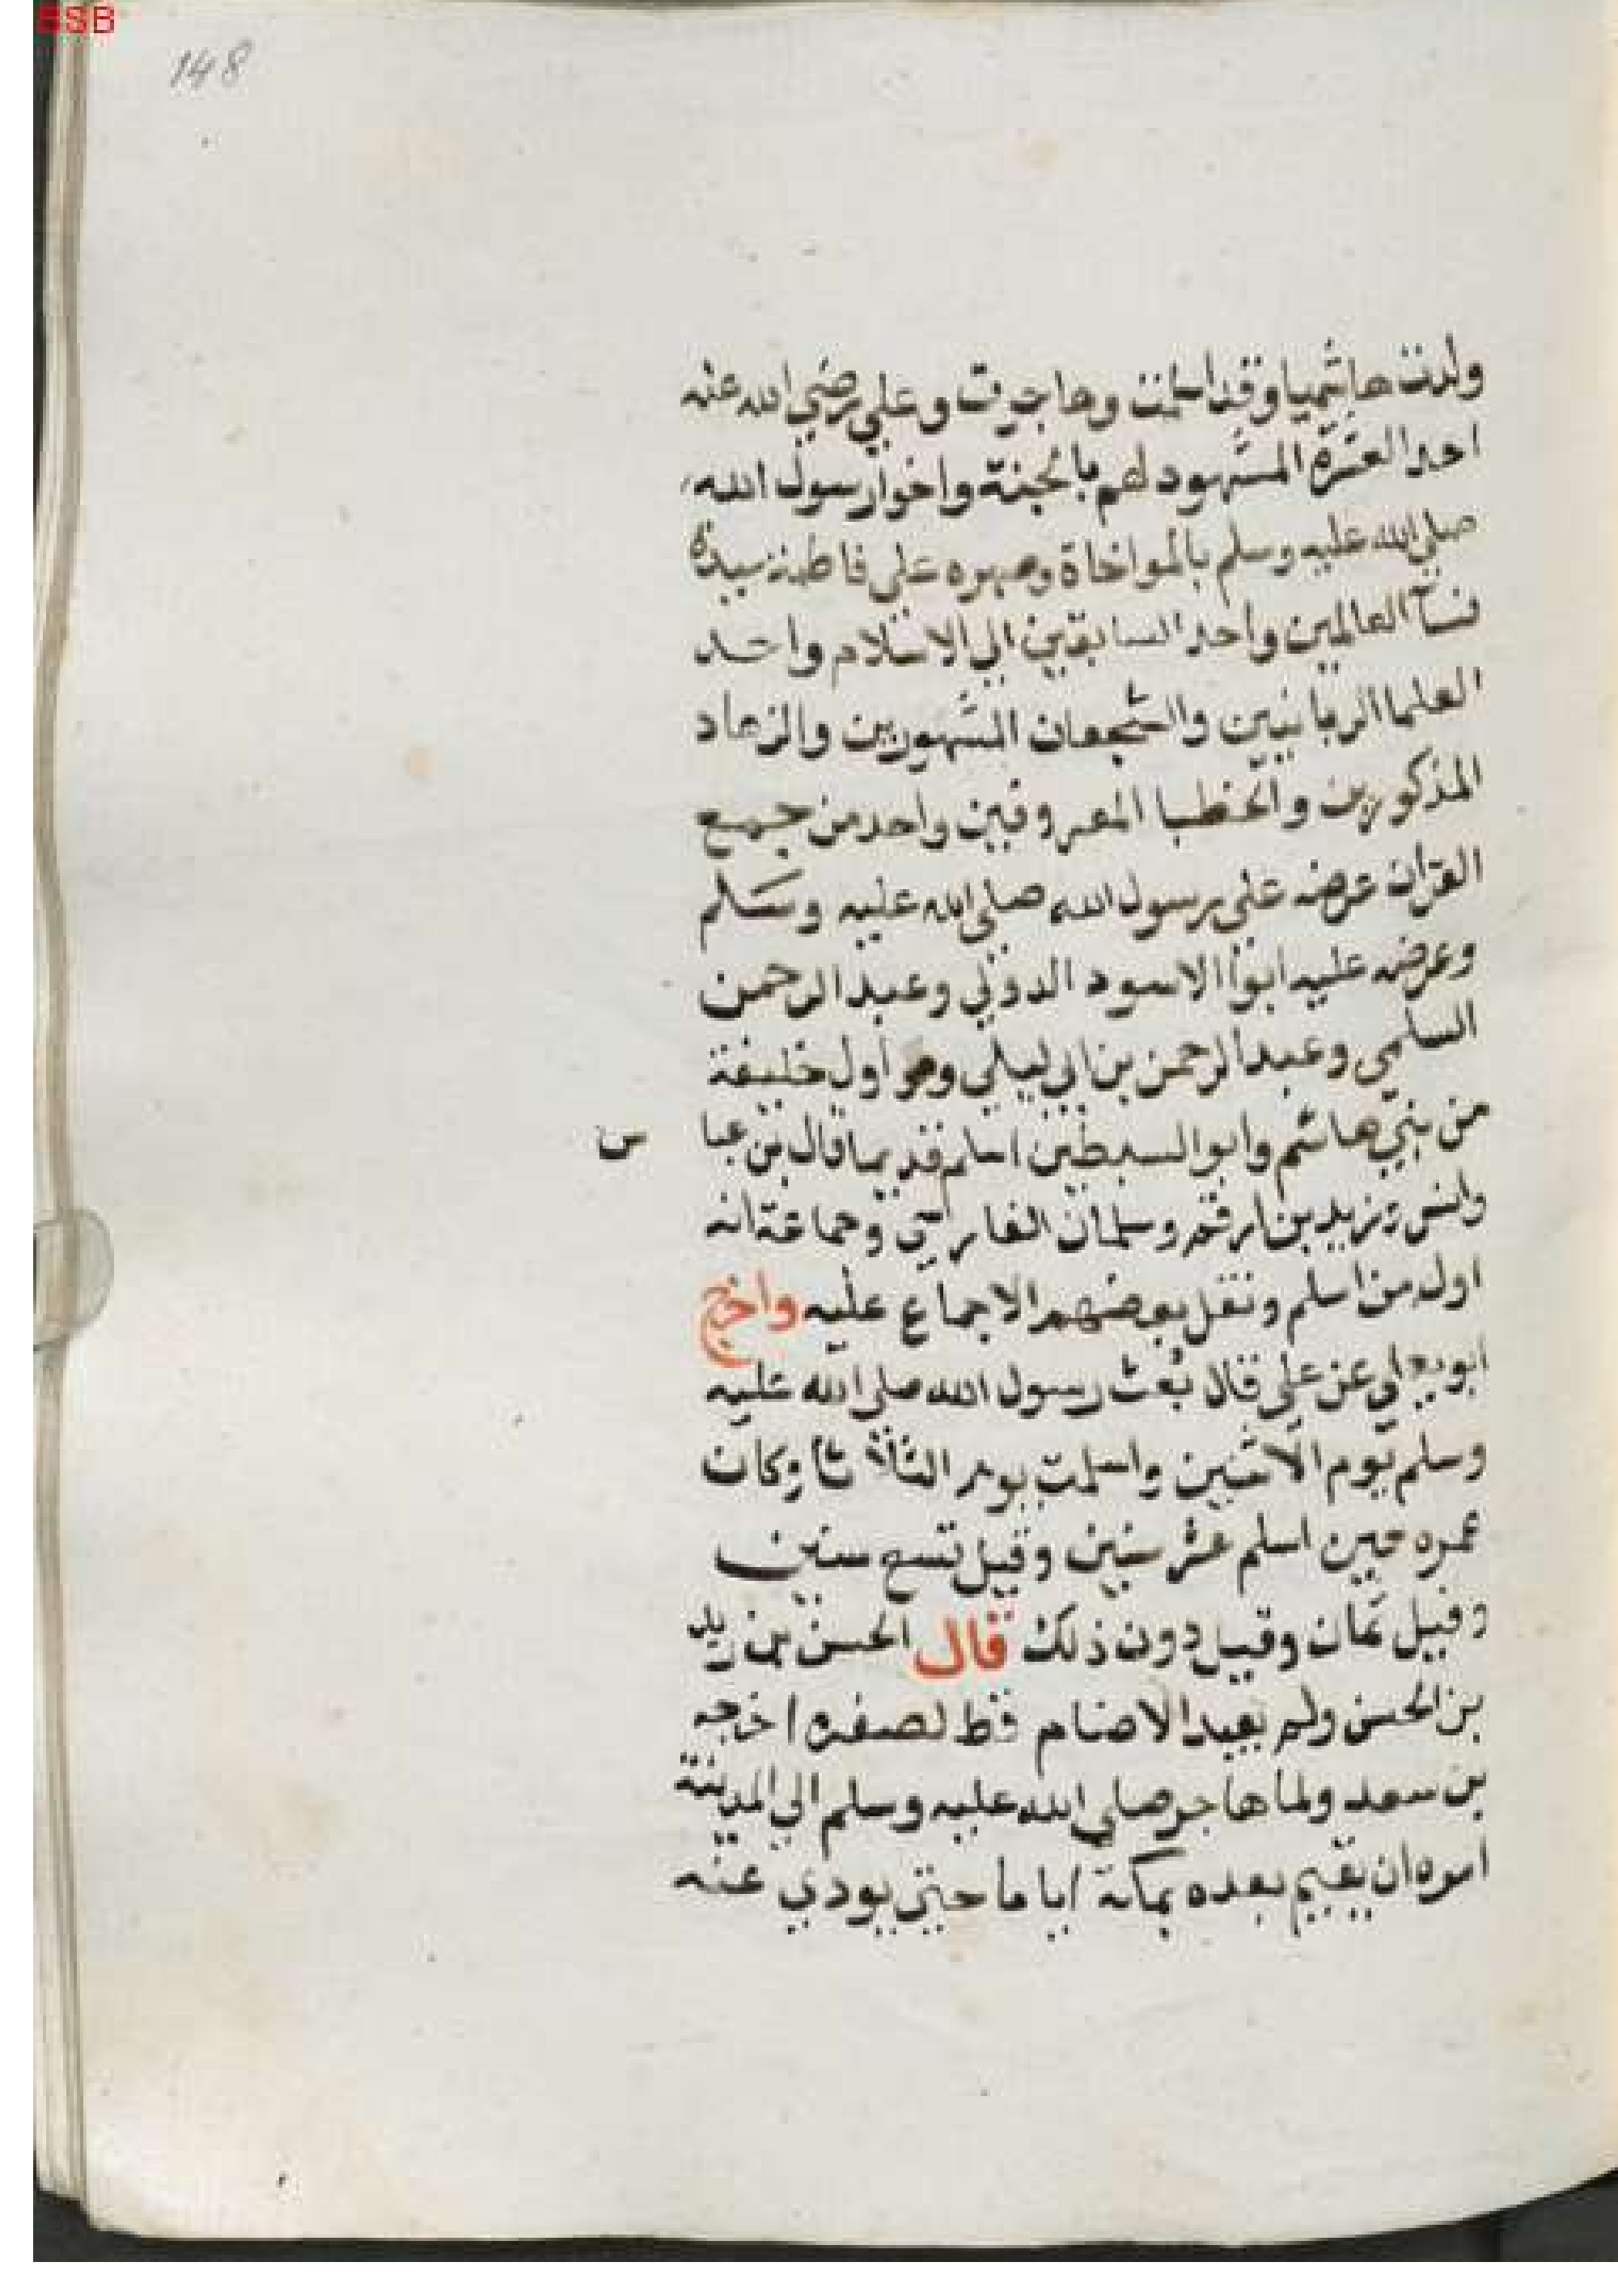 BSB
148
ولدت هاشميا وقد اسلمت وهاجرت وعلي رضي الله عنه
احد العشرة المشهود لهم بالجنة واخوا رسول الله
صلي الله عليه وسلم بالمواخاة وصهره على فاطمة سيدة
نسآ العالمين واحد السابقين الي الاسلام واحد
العلما الربانيين والشجعان المشهورين والزهاد
المذكورين والخطبا المعروفين واحد من جمع
القران عرضه على رسول الله صلي الله عليه وسلم
وعرضه عليه ابوا الاسود الدولي وعبد الرحمن
السلمي وعبد الرحمن بن ابي ليلي وهو اول خليفة
من بني هاشم وابو السبطين اسلم قديما قال بن عبا س
وانس وزيد بن ارقم وسلمان الفارسي وجماعة انه
اول من اسلم ونقل بعضهم الاجماع عليه واخرج
ابو يعلي عن علي قال بعث رسول الله صلي الله عليه
وسلم يوم الاثنين واسلمت يوم الثلاثا وكان
عمره حين اسلم عشر سنين وقيل تسع سنين
وقيل ثمان وقيل دون ذلك قال الحسن بن زيد
بن الحسن ولم يعبد الاصنام قط لصغره اخرجه
بن سعد ولما هاجر صلي الله عليه وسلم الي المدينة
امره ان يقيم بعده بمكة اياما حتي يودي عنه